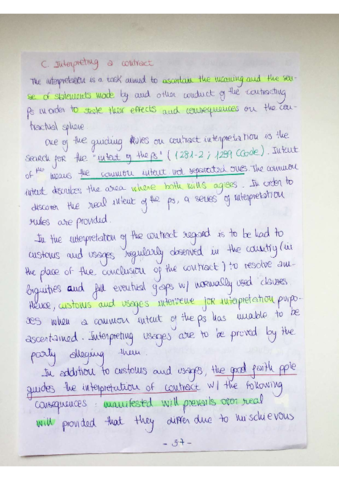 C. Interpreting a contract
The interpretation is a task aimed to ascertain the meaning and the sen-
se of statements made by and other conduct of the contracting
Ps in order to state their effects and consequences on the con-
tractual sphere.
One of the guiding rules on contract interpretation is the
search for the "intent of the Ps" (1281-2; 1289 CCode). Intent
of Ps means the common intent not separated ones. The common
intent describes the area where both wills agree. In order to
discover the real intent of the ps, a series of interpretation
rules are provided.
In the interpretation of the contract regard is to be had to
customs and usages regularly observed in the country (in
the place of the conclusion of the contract) to resolve am-
biguities and fill eventual gaps w/ normally used clauses
Hence, customs and usages intervene for interpretation purpo-
ses when a common intent of the ps has unable to be
ascertained. Interpreting usages are to be proved by the
party alleging them.
In addition to customs and usages, the good faith pple
guides the interpretation of contract w/ the following
consequences: manifested will prevails over real
will provided that they differ due to mischievous
- 37 -